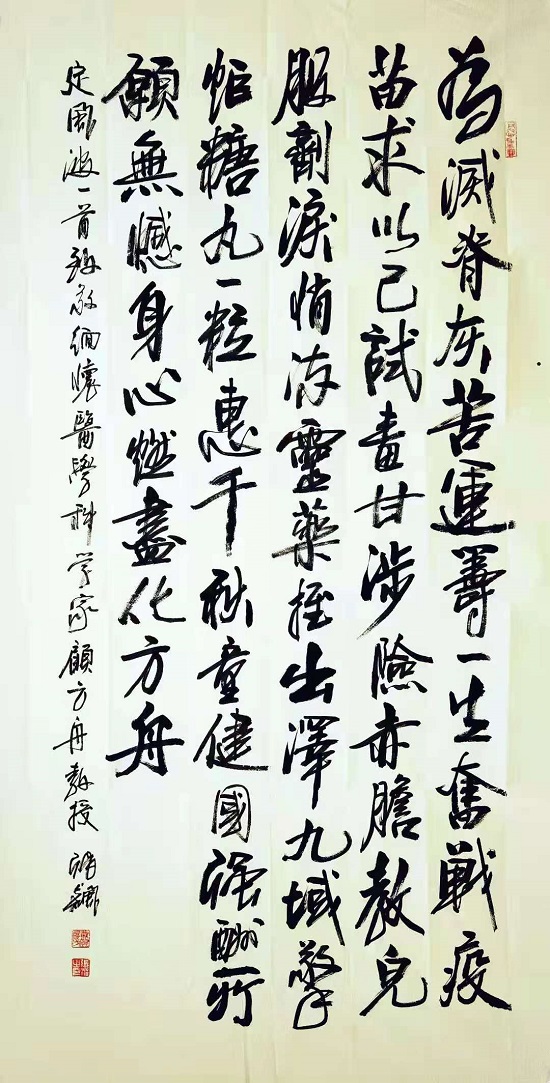 為滅脊灰苦運籌一生奮戰疫
苗求以己試毒甘涉險赤膽教兒
服劑淚悄流靈藥推出澤九域擎
炬糖丸一粒惠千秋童健國強酬所
願無憾身心燃盡化方舟
定風波一首致敬緬懷醫學科学家顧方舟教授